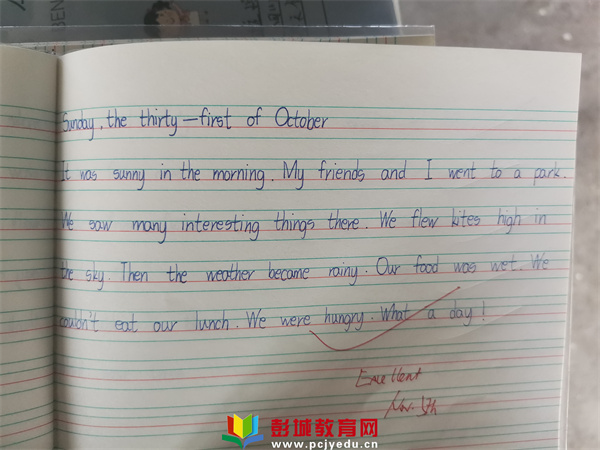 BEN
Sunday, the thirty-first of October
It was sunny in the morning. My friends and I went to a park.
We saw many interesting things there. We flew kites high in
the sky. Then the weather became rainy. Our food was wet. We
couldn't eat our lunch. We were hungry. What a day!
Excellent
Nov. 5th
彭城教育网
www.pcjyedu.cn